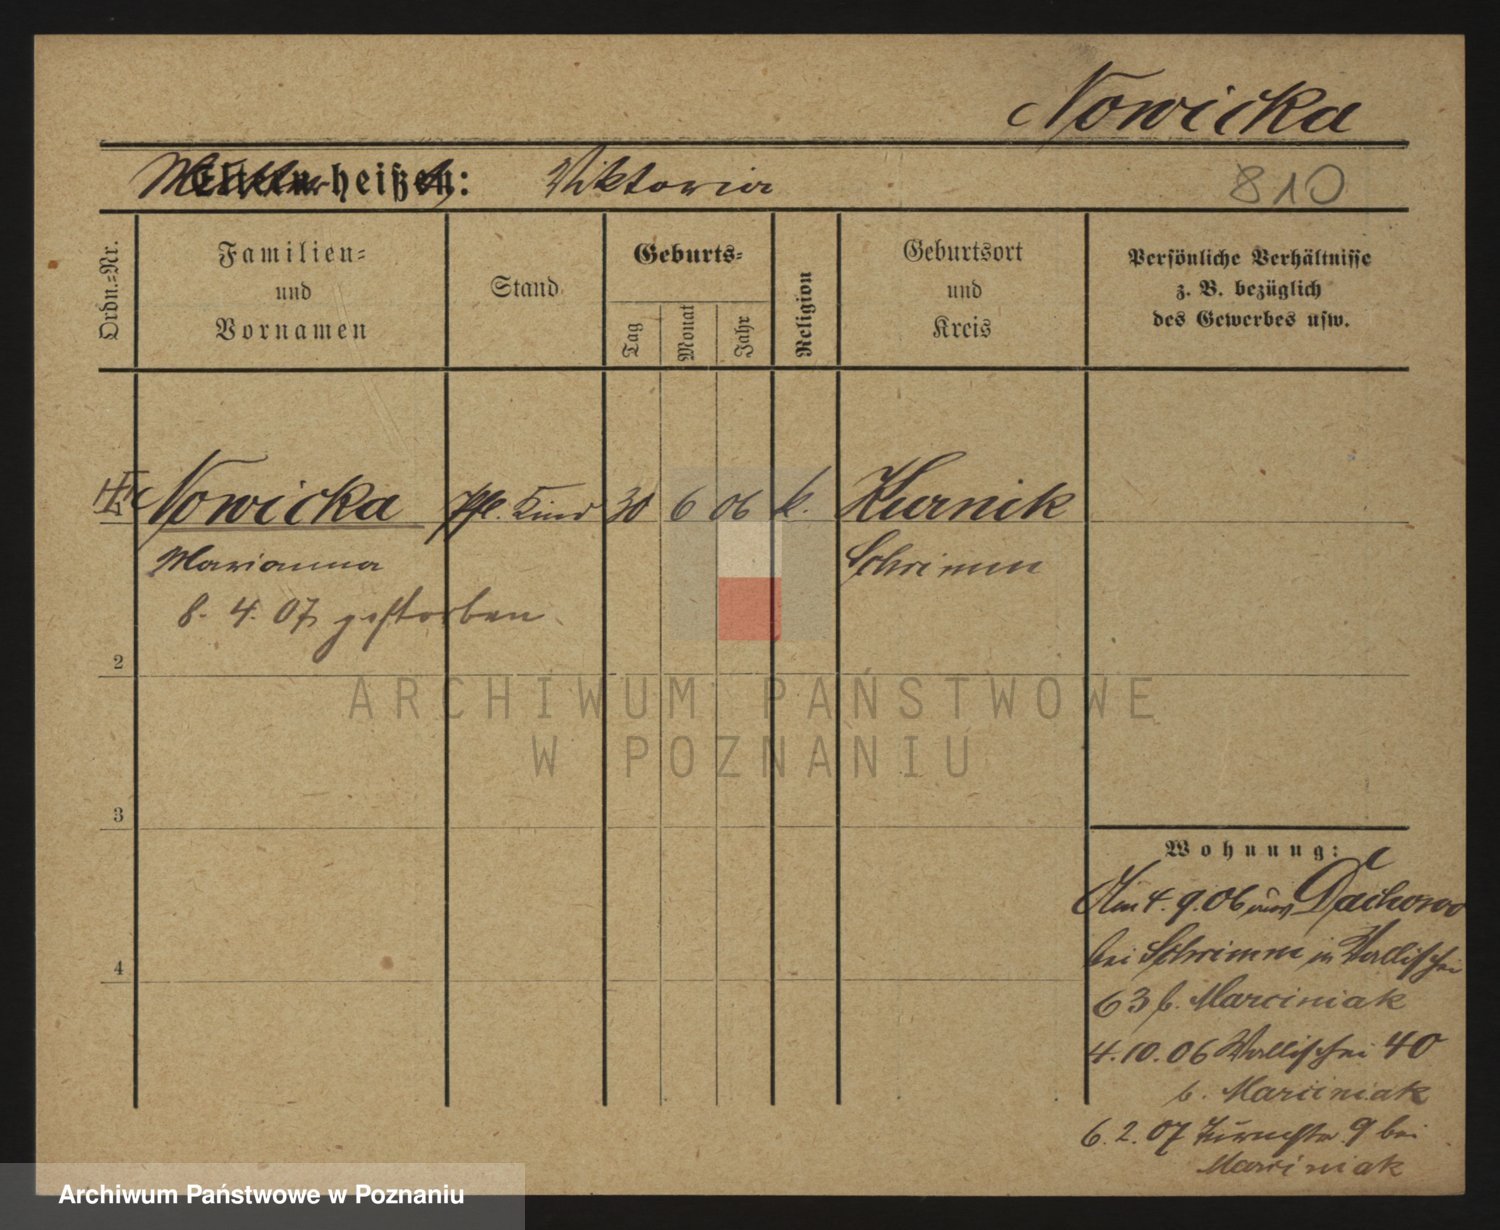 Nowicka
Mutter heißt: Viktoria
810
Ordn.-Nr.
Familien-
und
Vornamen
Stand
Geburts-
Tag
Monat
Jahr
Religion
Geburtsort
und
Kreis
Persönliche Verhältnisse
z. B. bezüglich
des Gewerbes usw.
Nowicka Pfl. Kind 30 6 06 k. Kurnik
Marianna Schrimm
8. 4. 07 gestorben
2
3
4
Wohnung:
Am 4. 9. 06 aus Dachowo
bei Schrimm in Wallischei
63 b. Marciniak
4. 10. 06 Wallischei 40
b. Marciniak
6. 2. 07 9 bei
Marciniak
ARCHIWUM PAŃSTWOWE
W POZNANIU
Archiwum Państwowe w Poznaniu